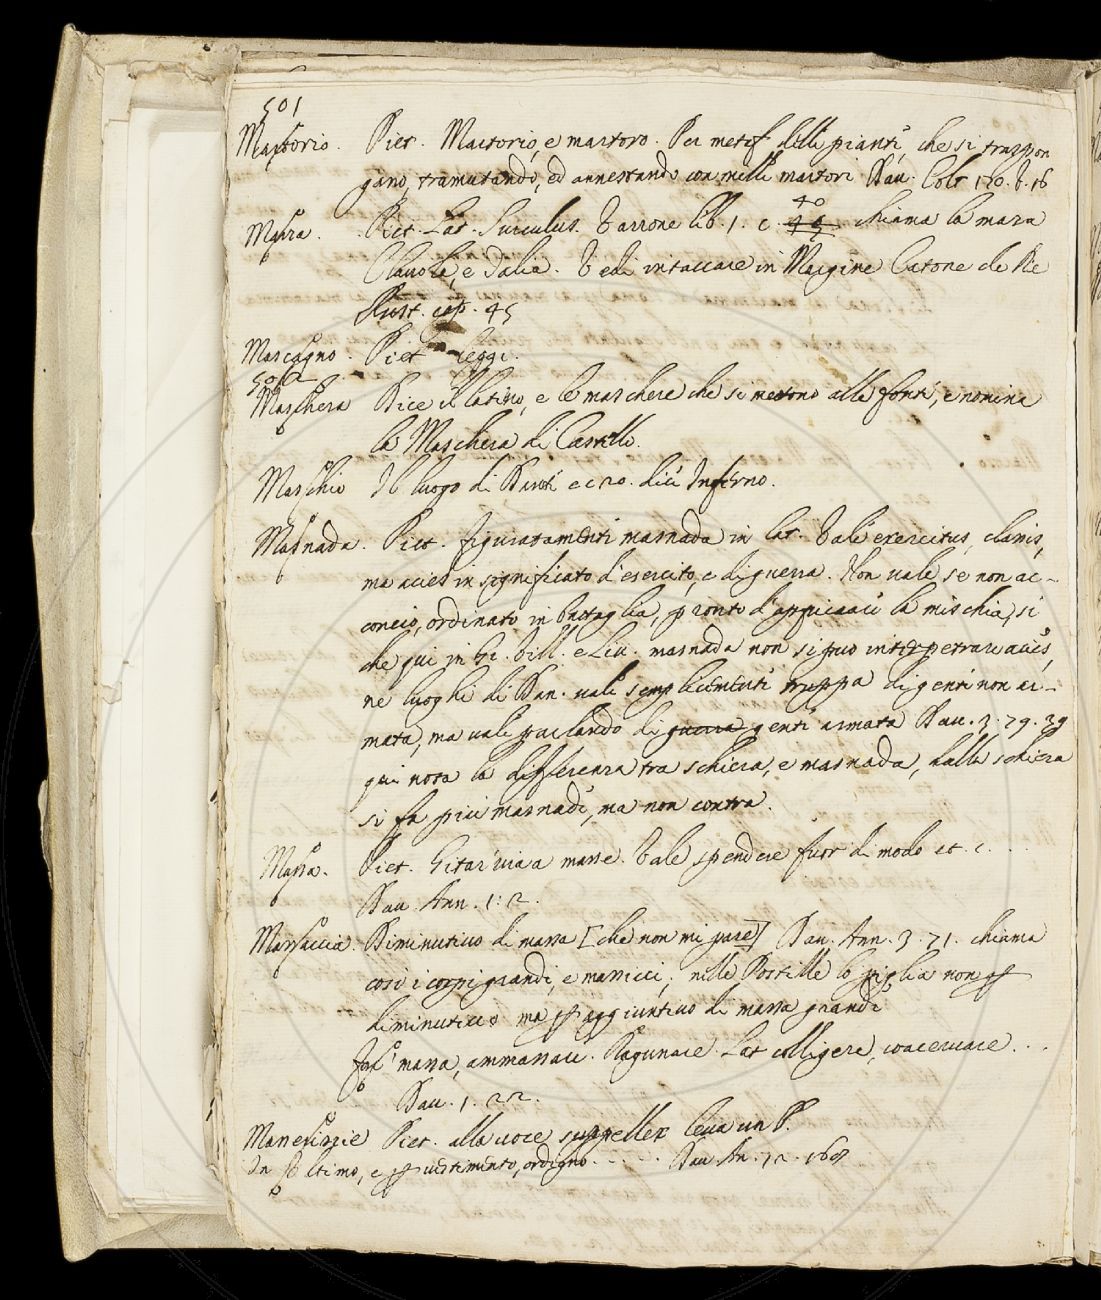 501
Martorio. Piet. Martorio, e martoro. Per metaf. delle piante, che si traspon
gano, tramutando, ed annestando con mille martori Dav. Colt 180. b. 16
Marza. Piet. Lat. Surculus. Varrone lib. 1. c. 45 40 chiama la marza
Clavola, e Talia. Vedi intaccare in Margine Catone de Re
Rust. cap. 45
Mascagno. Piet. leggi.
501
Maschera Dice il latino, e le maschere che si mettono alle fonti, e nomina
la Maschera di Castello.
Maschio Il luogo di Dante è c 20. dell' Inferno.
Masnada. Piet. figuratamente masnada in lat. Vale exercitus, classis,
ma acies in significato d'esercito, e di guerra. Non vale se non ac-
concio, ordinato in battaglia, pronto d'appiccare la mischia, si
che qui in Gi. Vill. e Liv. masnada non si puo interpetrare acies,
ne luoghi di Dan. vale semplicemente truppa di gente non ar-
mata, ma vale parlando di guerra gente armata Dav. 3. 79. 39
qui nota la differenza tra schiera, e masnada, dalla schiera
si fa più masnade, ma non contra.
Massa. Piet. Gittar via a masse. Vale spendere fuor di modo et. c. ...
Dav. Ann. 1: 2.
Massaccia. Diminutivo di massa [che non mi pare] Dav. Ann. 3. 71. chiama
così i corpi grandi, e massicci; nelle Postille lo piglia non p
diminutivo ma p aggiuntivo di massa grande
Far massa, ammassare. Ragunare. Lat colligere, coacervare. ..
Dav. 1. 22.
Masserizie Piet. alla voce suppellex leva un P.
In ultimo, e p vestimento, ordigno. .... Dav An. 12. 160